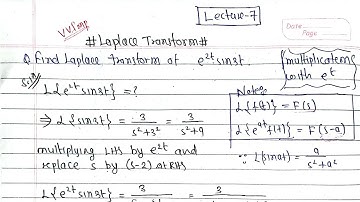 Lecture-7
V.V.Imp
Date
Page
#Laplace Transform#
Q. Find Laplace Transform of e^2t sin3t.
multiplication with e^t
Sol^n
L{e^2t sin3t} = ?
Note:-
L{f(t)} = F(s)
L{e^at f(t)} = F(s-a)
⇒ L{sin3t} = 3/(s²+3²) = 3/(s²+9)
multiplying LHS by e^2t and
replace s by (s-2) at RHS
∵ L(sinat) = a/(s²+a²)
L{e^2t sin3t} = 3 = 3